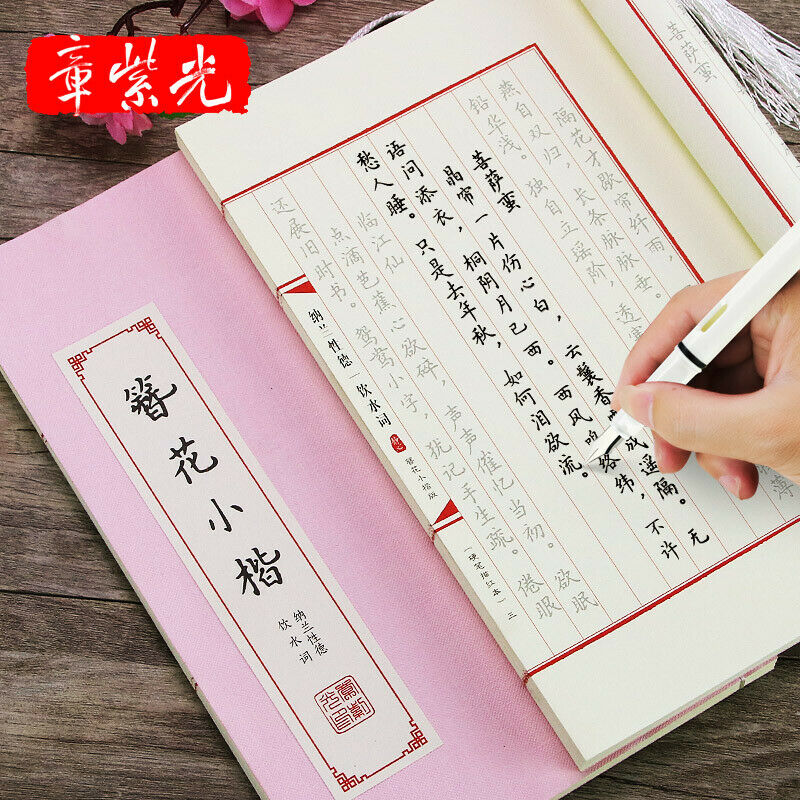 章紫光
菩萨蛮
隔花才歇帘纤雨，
燕自双归，长条脉脉垂。
铅华浅。独自立瑶阶，透寒
菩萨蛮
晶帘一片伤心白，云鬟香成遥隔。无
语问添衣，桐阴月已西。西风鸣络纬，不许
愁人睡。只是去年秋，如何泪欲流。
临江仙
点滴芭蕉心欲碎，声声催忆当初。欲眠
还展旧时书。鸳鸯小字，犹记手生疏。倦眼
纳兰性德｜饮水词 簪花小楷版
（硬笔描红本） 三
簪花小楷
纳兰性德
饮水词